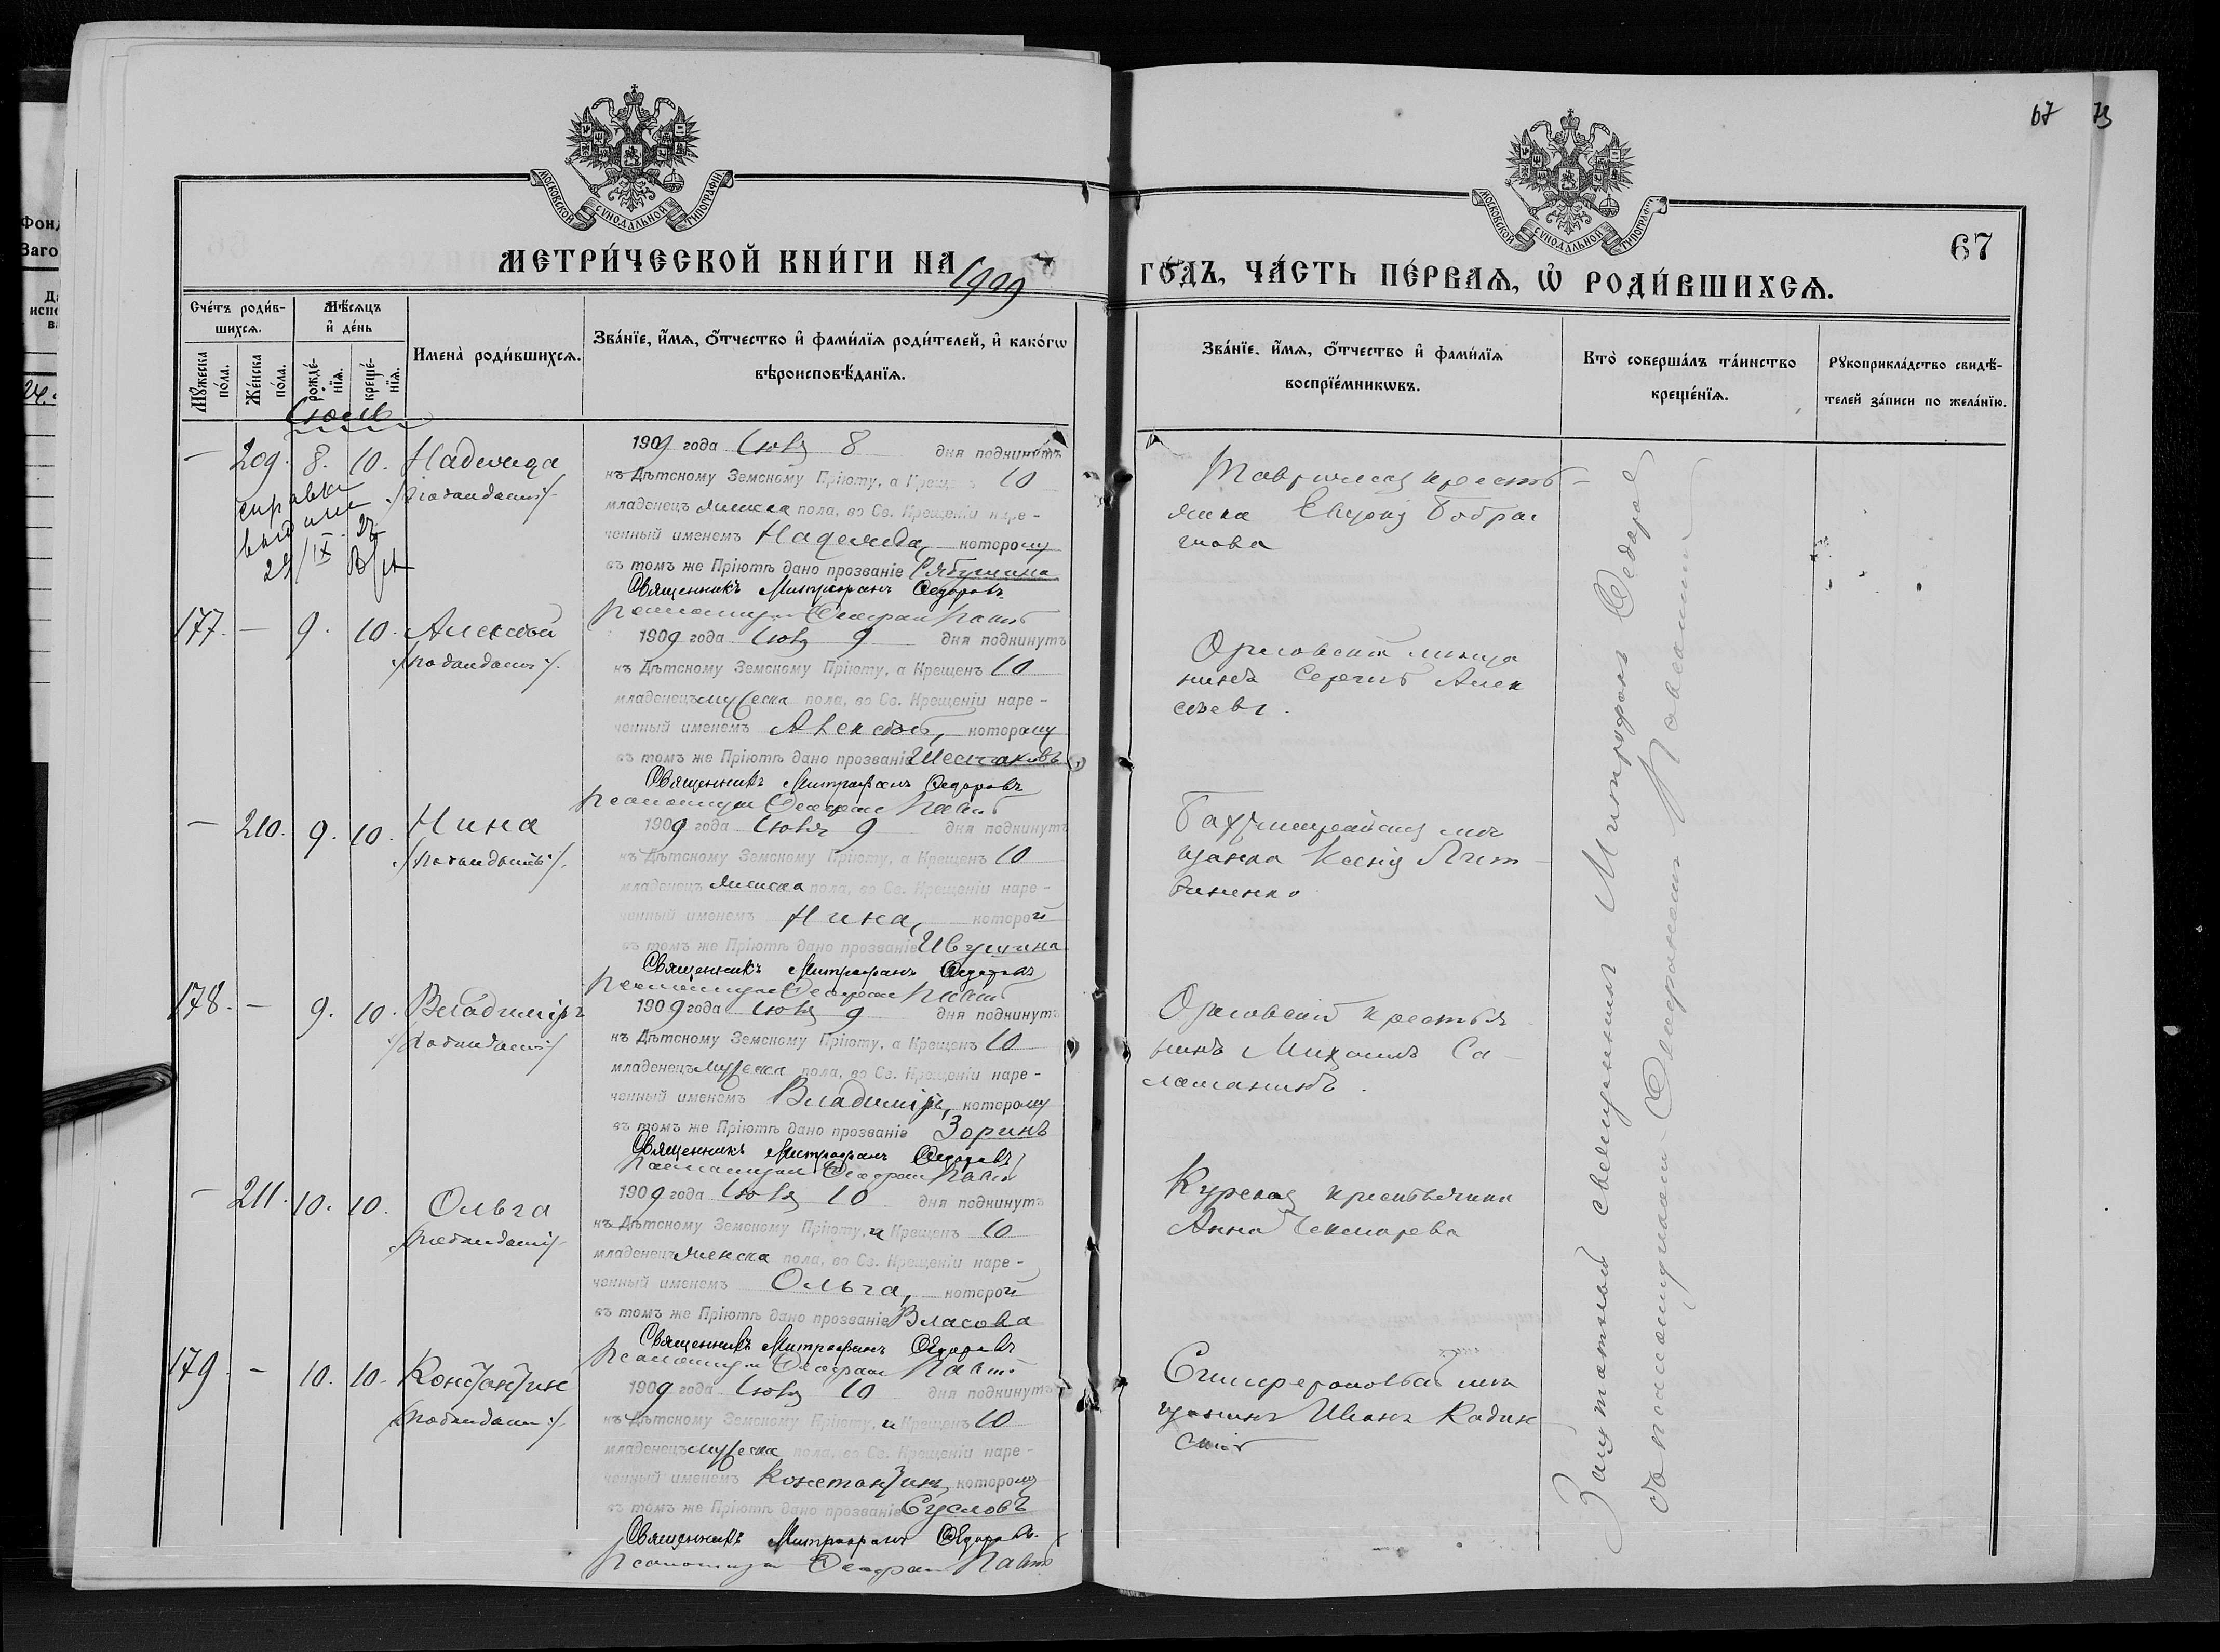 67 73
МОСКОВСКОЙ СѴНОДАЛЬНОЙ ТИПОГРАФІИ
МОСКОВСКОЙ СѴНОДАЛЬНОЙ ТИПОГРАФІИ
67
МЕТРИ́ЧЕСКОЙ КНИ́ГИ НА 1909
ГО́ДЪ, ЧА́СТЬ ПЕ́РВАѦ, Ѡ҆ РОДИ́ВШИХСѦ.
Сче́тъ роди́в-
шихсѧ.
Мꙋ́жеска
по́ла.
Же́нска
по́ла.
Мѣ́сѧцъ
и҆ де́нь
рожде́-
нїѧ.
креще́-
нїѧ.
Имена̀ роди́вшихсѧ.
Зва́нїе, и҆́мѧ, ѻ҆́тчество и҆ фами́лїѧ роди́телей, и҆ како́гѡ
вѣроисповѣ́данїѧ.
Зва́нїе, и҆́мѧ, ѻ҆́тчество и҆ фами́лїѧ
воспрїе́мникѡвъ.
Кто̀ соверша́лъ та́инство
креще́нїѧ.
Рꙋкоприкла́дство свидѣ́-
телей за́писи по жела́нїю.
Іюль
— 209. 8. 10. Надежда
справка
выдана
29/IX
1909 года Іюля 8 дня подкинутъ
къ Дѣтскому Земскому Пріюту, а Крещенъ 10
младенецъ женска пола, во Св. Крещеніи наре-
ченный именемъ Надежда, которому
въ томъ же Пріютѣ дано прозваніе Рябушина
Священникъ Митрофанъ Ѳедоровъ
Псаломщикъ
Таврическая кресть-
янка
177. — 9. 10. Алексѣй
1909 года Іюля 9 дня подкинутъ
къ Дѣтскому Земскому Пріюту, а Крещенъ 10
младенецъ мужеска пола, во Св. Крещеніи наре-
ченный именемъ Алексѣй, которому
въ томъ же Пріютѣ дано прозваніе Шестаковъ
Священникъ Митрофанъ Ѳедоровъ
Псаломщикъ
Орловскій мѣща
нинъ Сергій Алек
сѣевъ.
— 210. 9. 10. Нина
1909 года Іюля 9 дня подкинутъ
къ Дѣтскому Земскому Пріюту, а Крещенъ 10
младенецъ женска пола, во Св. Крещеніи наре-
ченный именемъ Нина, которой
въ томъ же Пріютѣ дано прозваніе Ивушина
Священникъ Митрофанъ Ѳедоровъ
Псаломщикъ
Бахчисарайская мѣ
щанка Ксенія Лит-
виненко
178. — 9. 10. Владиміръ
1909 года Іюля 9 дня подкинутъ
къ Дѣтскому Земскому Пріюту, а Крещенъ 10
младенецъ мужеска пола, во Св. Крещеніи наре-
ченный именемъ Владиміръ, которому
въ томъ же Пріютѣ дано прозваніе Зоринъ
Священникъ Митрофанъ Ѳедоровъ
Псаломщикъ
Орловскій крестья
нинъ Михаилъ Са-
— 211. 10. 10. Ольга
1909 года Іюля 10 дня подкинутъ
къ Дѣтскому Земскому Пріюту, и Крещенъ 10
младенецъ женска пола, во Св. Крещеніи наре-
ченный именемъ Ольга, которой
въ томъ же Пріютѣ дано прозваніе Власова
Священникъ Митрофанъ Ѳедоровъ
Псаломщикъ
Курская крестьянка
Анна Чекмарева
179. — 10. 10. Константинъ
1909 года Іюля 10 дня подкинутъ
къ Дѣтскому Земскому Пріюту, и Крещенъ 10
младенецъ мужеска пола, во Св. Крещеніи наре-
ченный именемъ Константинъ, которому
въ томъ же Пріютѣ дано прозваніе Сусловъ
Священникъ Митрофанъ Ѳедоровъ
Псаломщикъ
Симферопольскій мѣ
щанинъ Иванъ Кадин
скій
Заштатный священникъ Митрофанъ Ѳедоровъ
съ псаломщикомъ